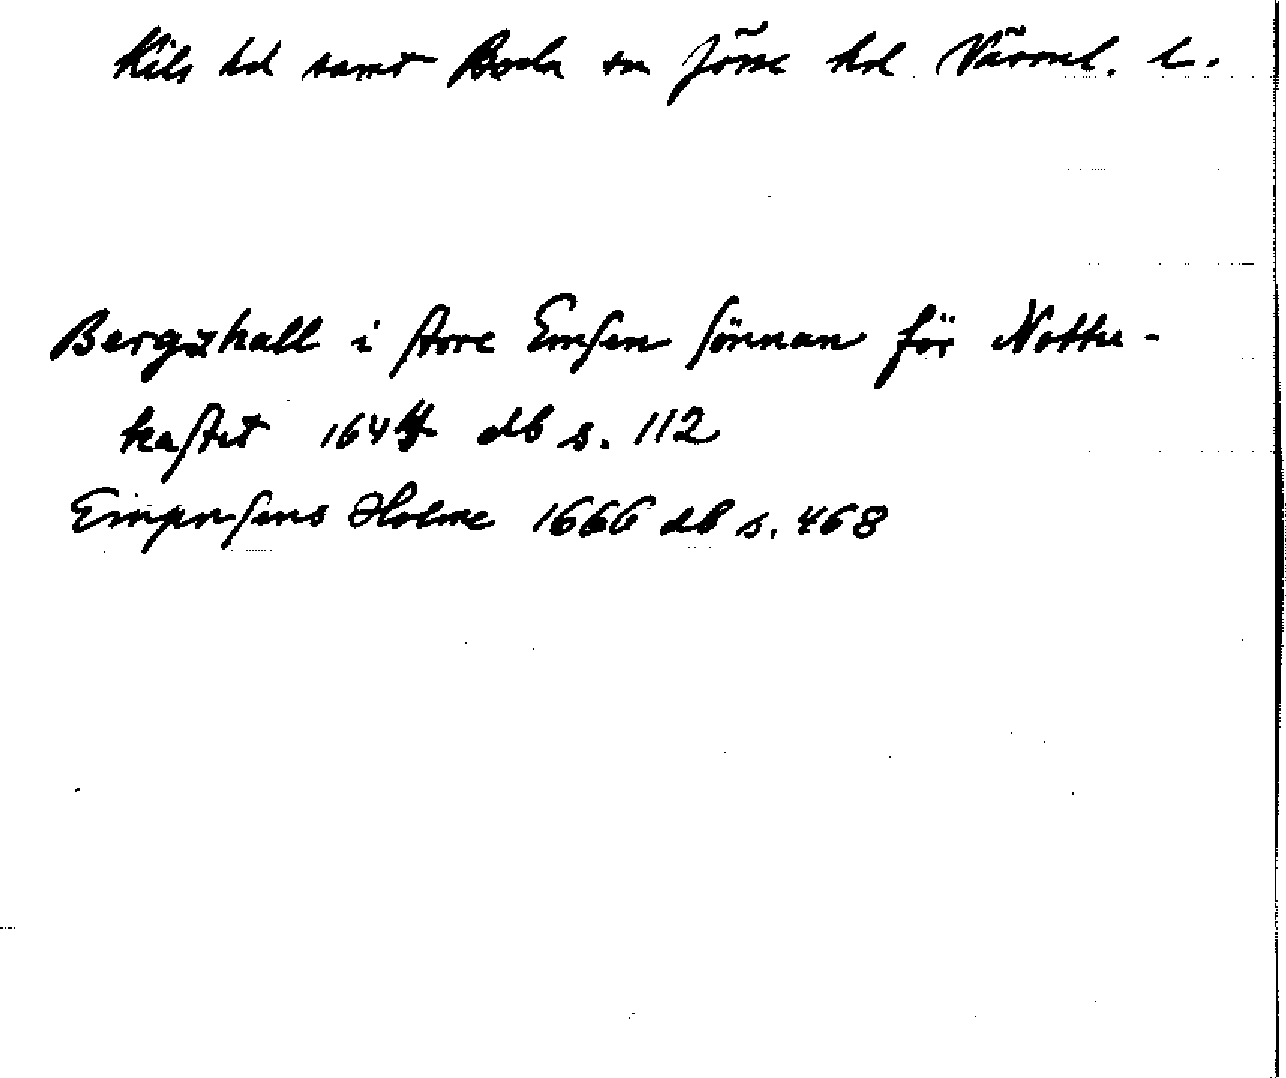 Kils hd samt Boda sn Jösse hd Värml. l.
Bergzhall i store Emsen sönnan för Nottu-
kastet 1644 db s. 112
Eimpnsens Holme 1666 db s. 468